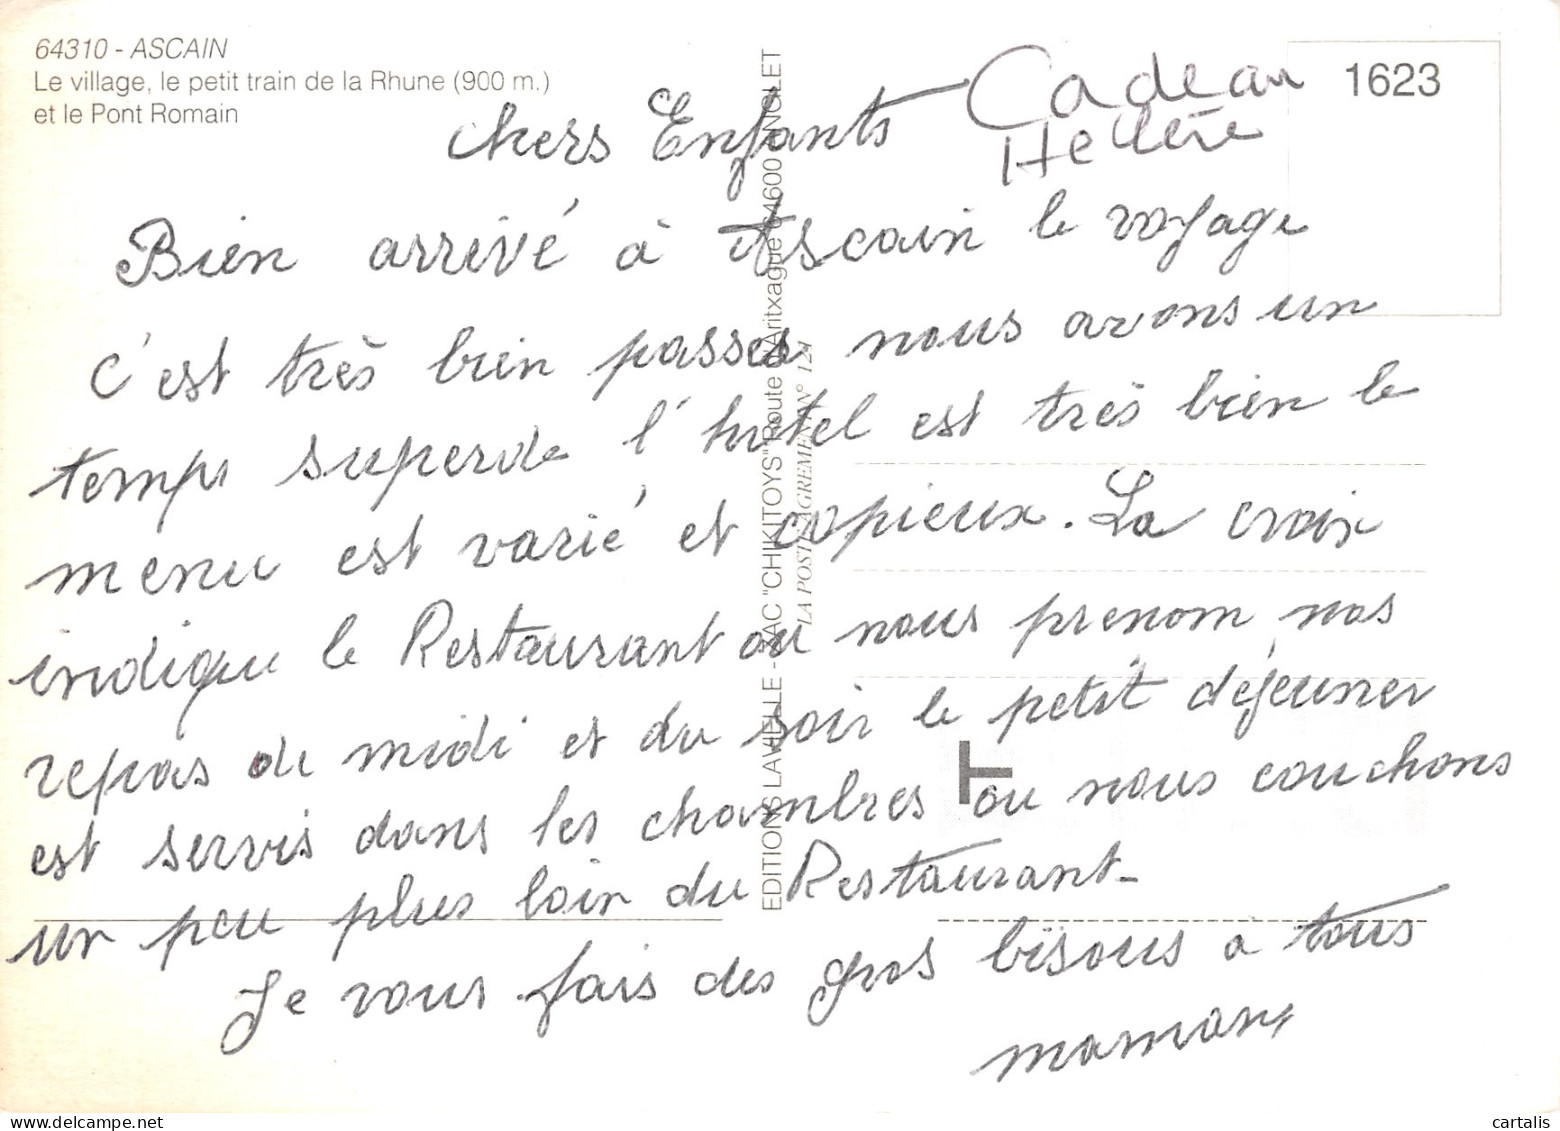 64310 - ASCAIN
Le village, le petit train de la Rhune (900 m.)
et le Pont Romain
1623
Cadeau
Hélène
chers Enfants
Bien arrivé à Ascain le voyage
c'est très bien passer nous avons un
temps superde l'hotel est très bien le
menu est varié et copieux. La croix
indique le Restaurant ou nous prenom nos
repas de midi et du soir le petit déjeuner
est servis dans les chambres ou nous couchons
un peu plus loin du Restaurant-
Je vous fais des gros bisous à tous
maman
EDITIONS LAVIELLE - ZAC "CHIKITOYS" Route d'Aritxague 64600 ANGLET
LA POSTE AGREMENT N° 124
cartalis